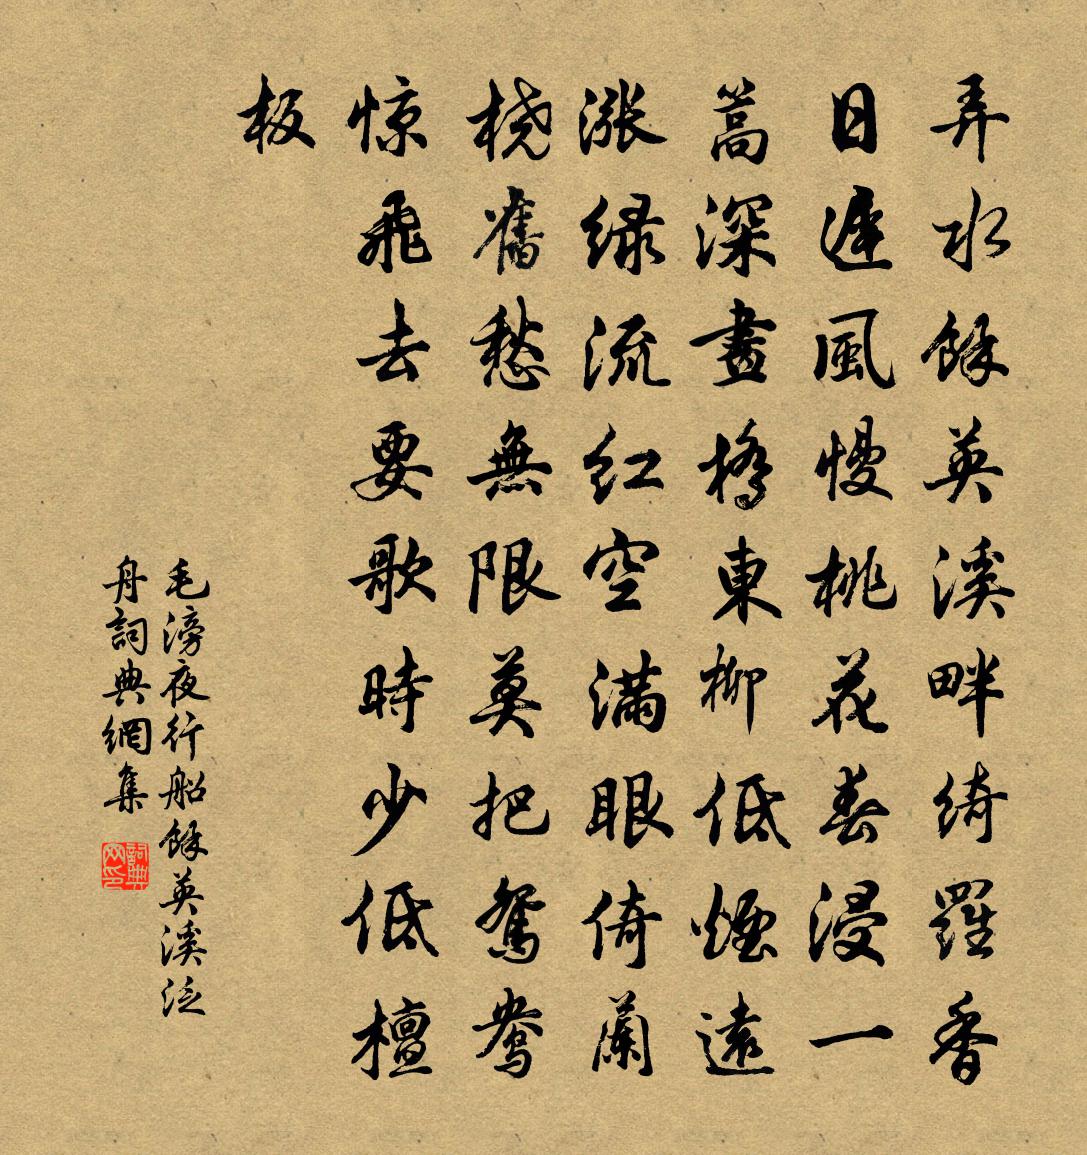 弄水餘英溪畔綺羅香
日遲風慢桃花春浸一
蒿深畫橋東柳低煙遠
漲绿流红空满眼倚蘭
橈舊愁無限莫把鴛鴦
惊飛去要歌時少低檀
板
毛滂夜行船餘英溪泛
舟詞典網集
詞典
网印